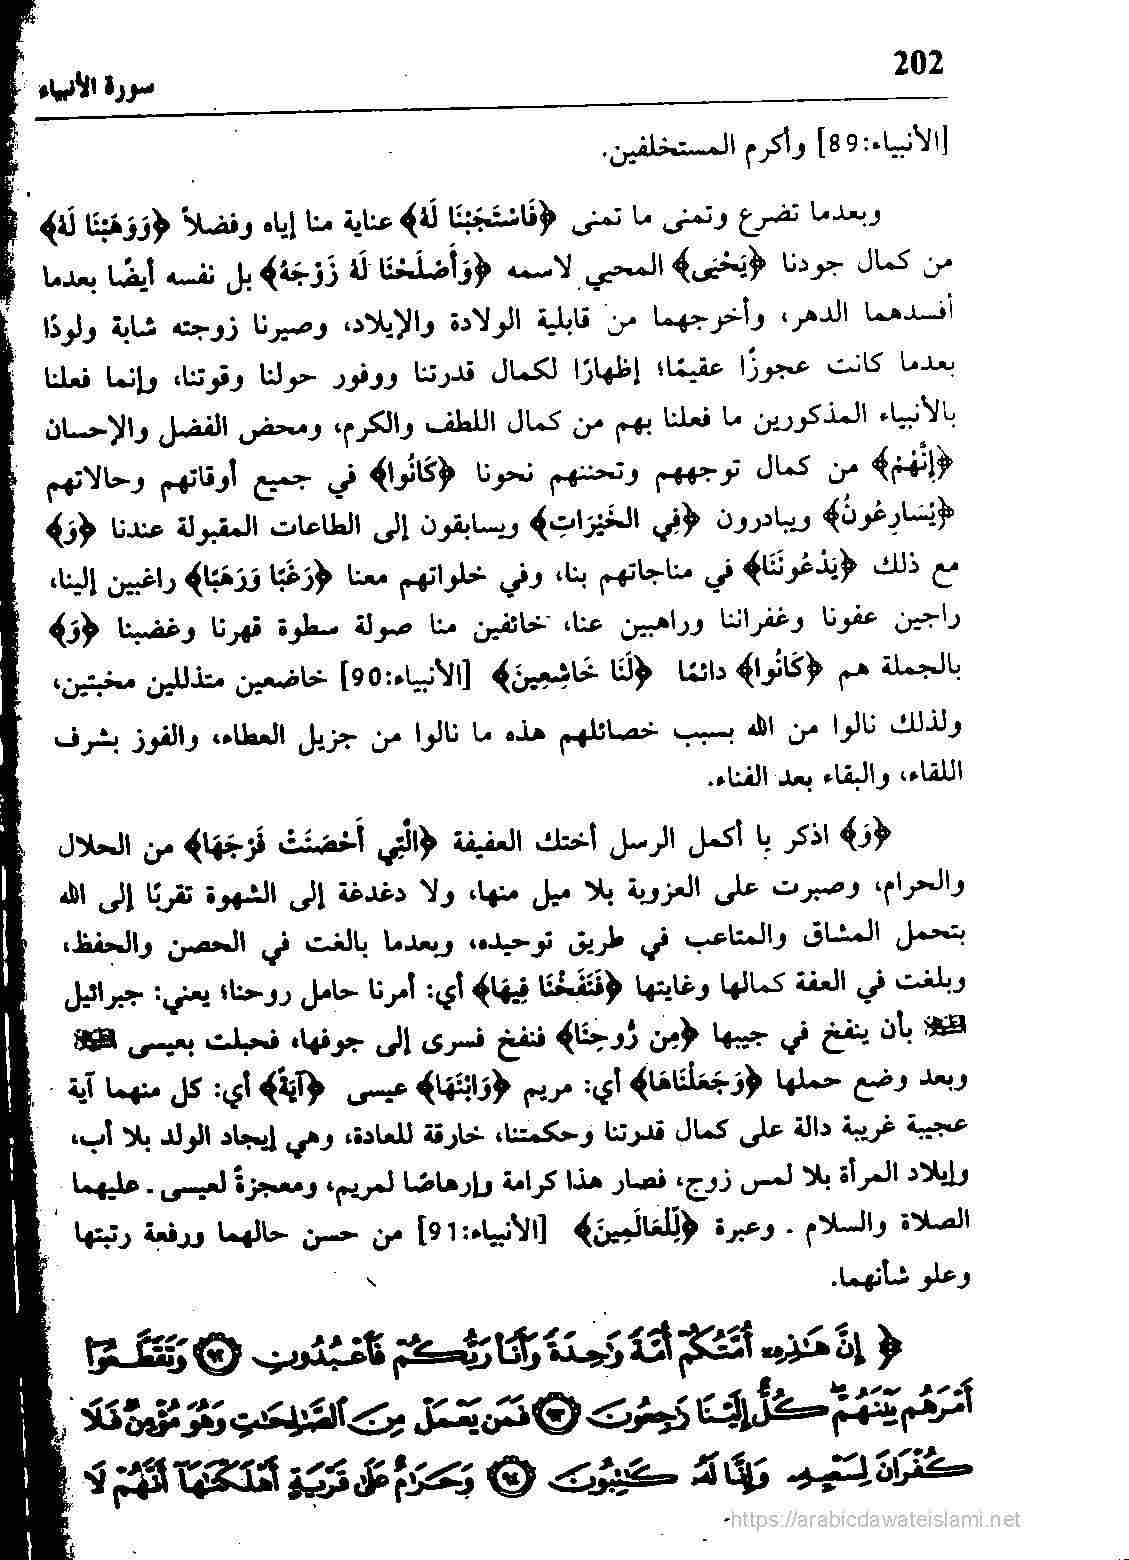 202
سورة الأنبياء
[الأنبياء:89] وأكرم المستخلفين.
وبعدما تضرع وتمنى ما تمنى ﴿فَاسْتَجَبْنَا لَهُ﴾ عناية منا إياه وفضلاً ﴿وَوَهَبْنَا لَهُ﴾
من كمال جودنا ﴿يَحْيَى﴾ المحيي لاسمه ﴿وَأَصْلَحْنَا لَهُ زَوْجَهُ﴾ بل نفسه أيضًا بعدما
أفسدهما الدهر، وأخرجهما من قابلية الولادة والإيلاد، وصيرنا زوجته شابة ولودًا
بعدما كانت عجوزًا عقيمًا؛ إظهارًا لكمال قدرتنا ووفور حولنا وقوتنا، وإنما فعلنا
بالأنبياء المذكورين ما فعلنا بهم من كمال اللطف والكرم، ومحض الفضل والإحسان
﴿إِنَّهُمْ﴾ من كمال توجههم وتحننهم نحونا ﴿كَانُوا﴾ في جميع أوقاتهم وحالاتهم
﴿يُسَارِعُونَ﴾ ويبادرون ﴿فِي الخَيْرَاتِ﴾ ويسابقون إلى الطاعات المقبولة عندنا ﴿وَ﴾
مع ذلك ﴿يَدْعُونَنَا﴾ في مناجاتهم بنا، وفي خلواتهم معنا ﴿رَغَبًا وَرَهَبًا﴾ راغبين إلينا،
راجين عفونا وغفراننا وراهبين عنا، خائفين منا صولة سطوة قهرنا وغضبنا ﴿وَ﴾
بالجملة هم ﴿كَانُوا﴾ دائمًا ﴿لَنَا خَاشِعِينَ﴾ [الأنبياء:90] خاضعين متذللين مخبتين،
ولذلك نالوا من الله بسبب خصائلهم هذه ما نالوا من جزيل العطاء، والفوز بشرف
اللقاء، والبقاء بعد الفناء.
﴿وَ﴾ اذكر يا أكمل الرسل أختك العفيفة ﴿الَّتِي أَحْصَنَتْ فَرْجَهَا﴾ من الحلال
والحرام، وصبرت على العزوبة بلا ميل منها، ولا دغدغة إلى الشهوة تقربًا إلى الله
بتحمل المشاق والمتاعب في طريق توحيده، وبعدما بالغت في الحصن والحفظ،
وبلغت في العفة كمالها وغايتها ﴿فَنَفَخْنَا فِيهَا﴾ أي: أمرنا حامل روحنا؛ يعني: جبرائيل
عليه السلام بأن ينفخ في جيبها ﴿مِن رُّوحِنَا﴾ فنفخ فسرى إلى جوفها، فحبلت بعيسى عليه السلام
وبعد وضع حملها ﴿وَجَعَلْنَاهَا﴾ أي: مريم ﴿وَابْنَهَا﴾ عيسى ﴿آيَةً﴾ أي: كل منهما آية
عجيبة غريبة دالة على كمال قدرتنا وحكمتنا، خارقة للعادة، وهي إيجاد الولد بلا أب،
وإيلاد المرأة بلا لمس زوج، فصار هذا كرامة وإرهاصًا لمريم، ومعجزةً لعيسى ـ عليهما
الصلاة والسلام ـ وعبرة ﴿لِّلْعَالَمِينَ﴾ [الأنبياء:91] من حسن حالهما ورفعة رتبتها
وعلو شأنهما.
﴿ إِنَّ هَٰذِهِۦٓ أُمَّتُكُمْ أُمَّةً وَٰحِدَةً وَأَنَا۠ رَبُّكُمْ فَٱعْبُدُونِ ٩٢ وَتَقَطَّعُوٓا۟
أَمْرَهُم بَيْنَهُمْ ۖ كُلٌّ إِلَيْنَا رَٰجِعُونَ ٩٣ فَمَن يَعْمَلْ مِنَ ٱلصَّٰلِحَٰتِ وَهُوَ مُؤْمِنٌ فَلَا
كُفْرَانَ لِسَعْيِهِۦ وَإِنَّا لَهُۥ كَٰتِبُونَ ٩٤ وَحَرَٰمٌ عَلَىٰ قَرْيَةٍ أَهْلَكْنَٰهَآ أَنَّهُمْ لَا
https://arabicdawateislami.net